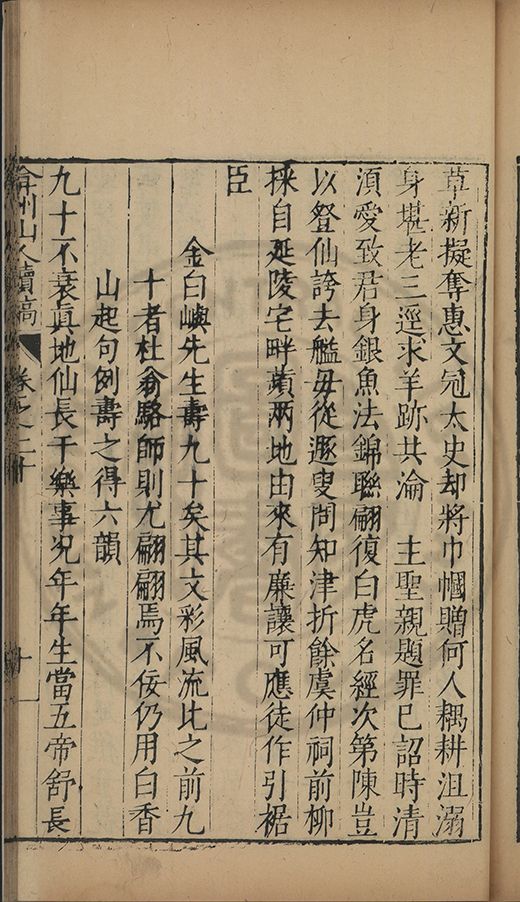 草新擬奪惠文冠太史却將巾幗贈何人耦耕沮溺
身堪老三逕求羊跡共淪　主聖親題罪巳詔時清
湏愛致君身銀魚法錦聯翩復白虎名經次第陳豈
以登仙誇去艦毋從遯叟問知津折餘虞仲祠前柳
採自延陵宅畔蘋兩地由來有廉讓可應徒作引裾
臣
金白嶼先生壽九十矣其文彩風流比之前九
十者杜翁駱師則尤翩翩焉不佞仍用白香
山起句例壽之得六韻
九十不衰眞地仙長千樂事况年年生當五帝舒長
弇州山人續稿
卷之二十
十一